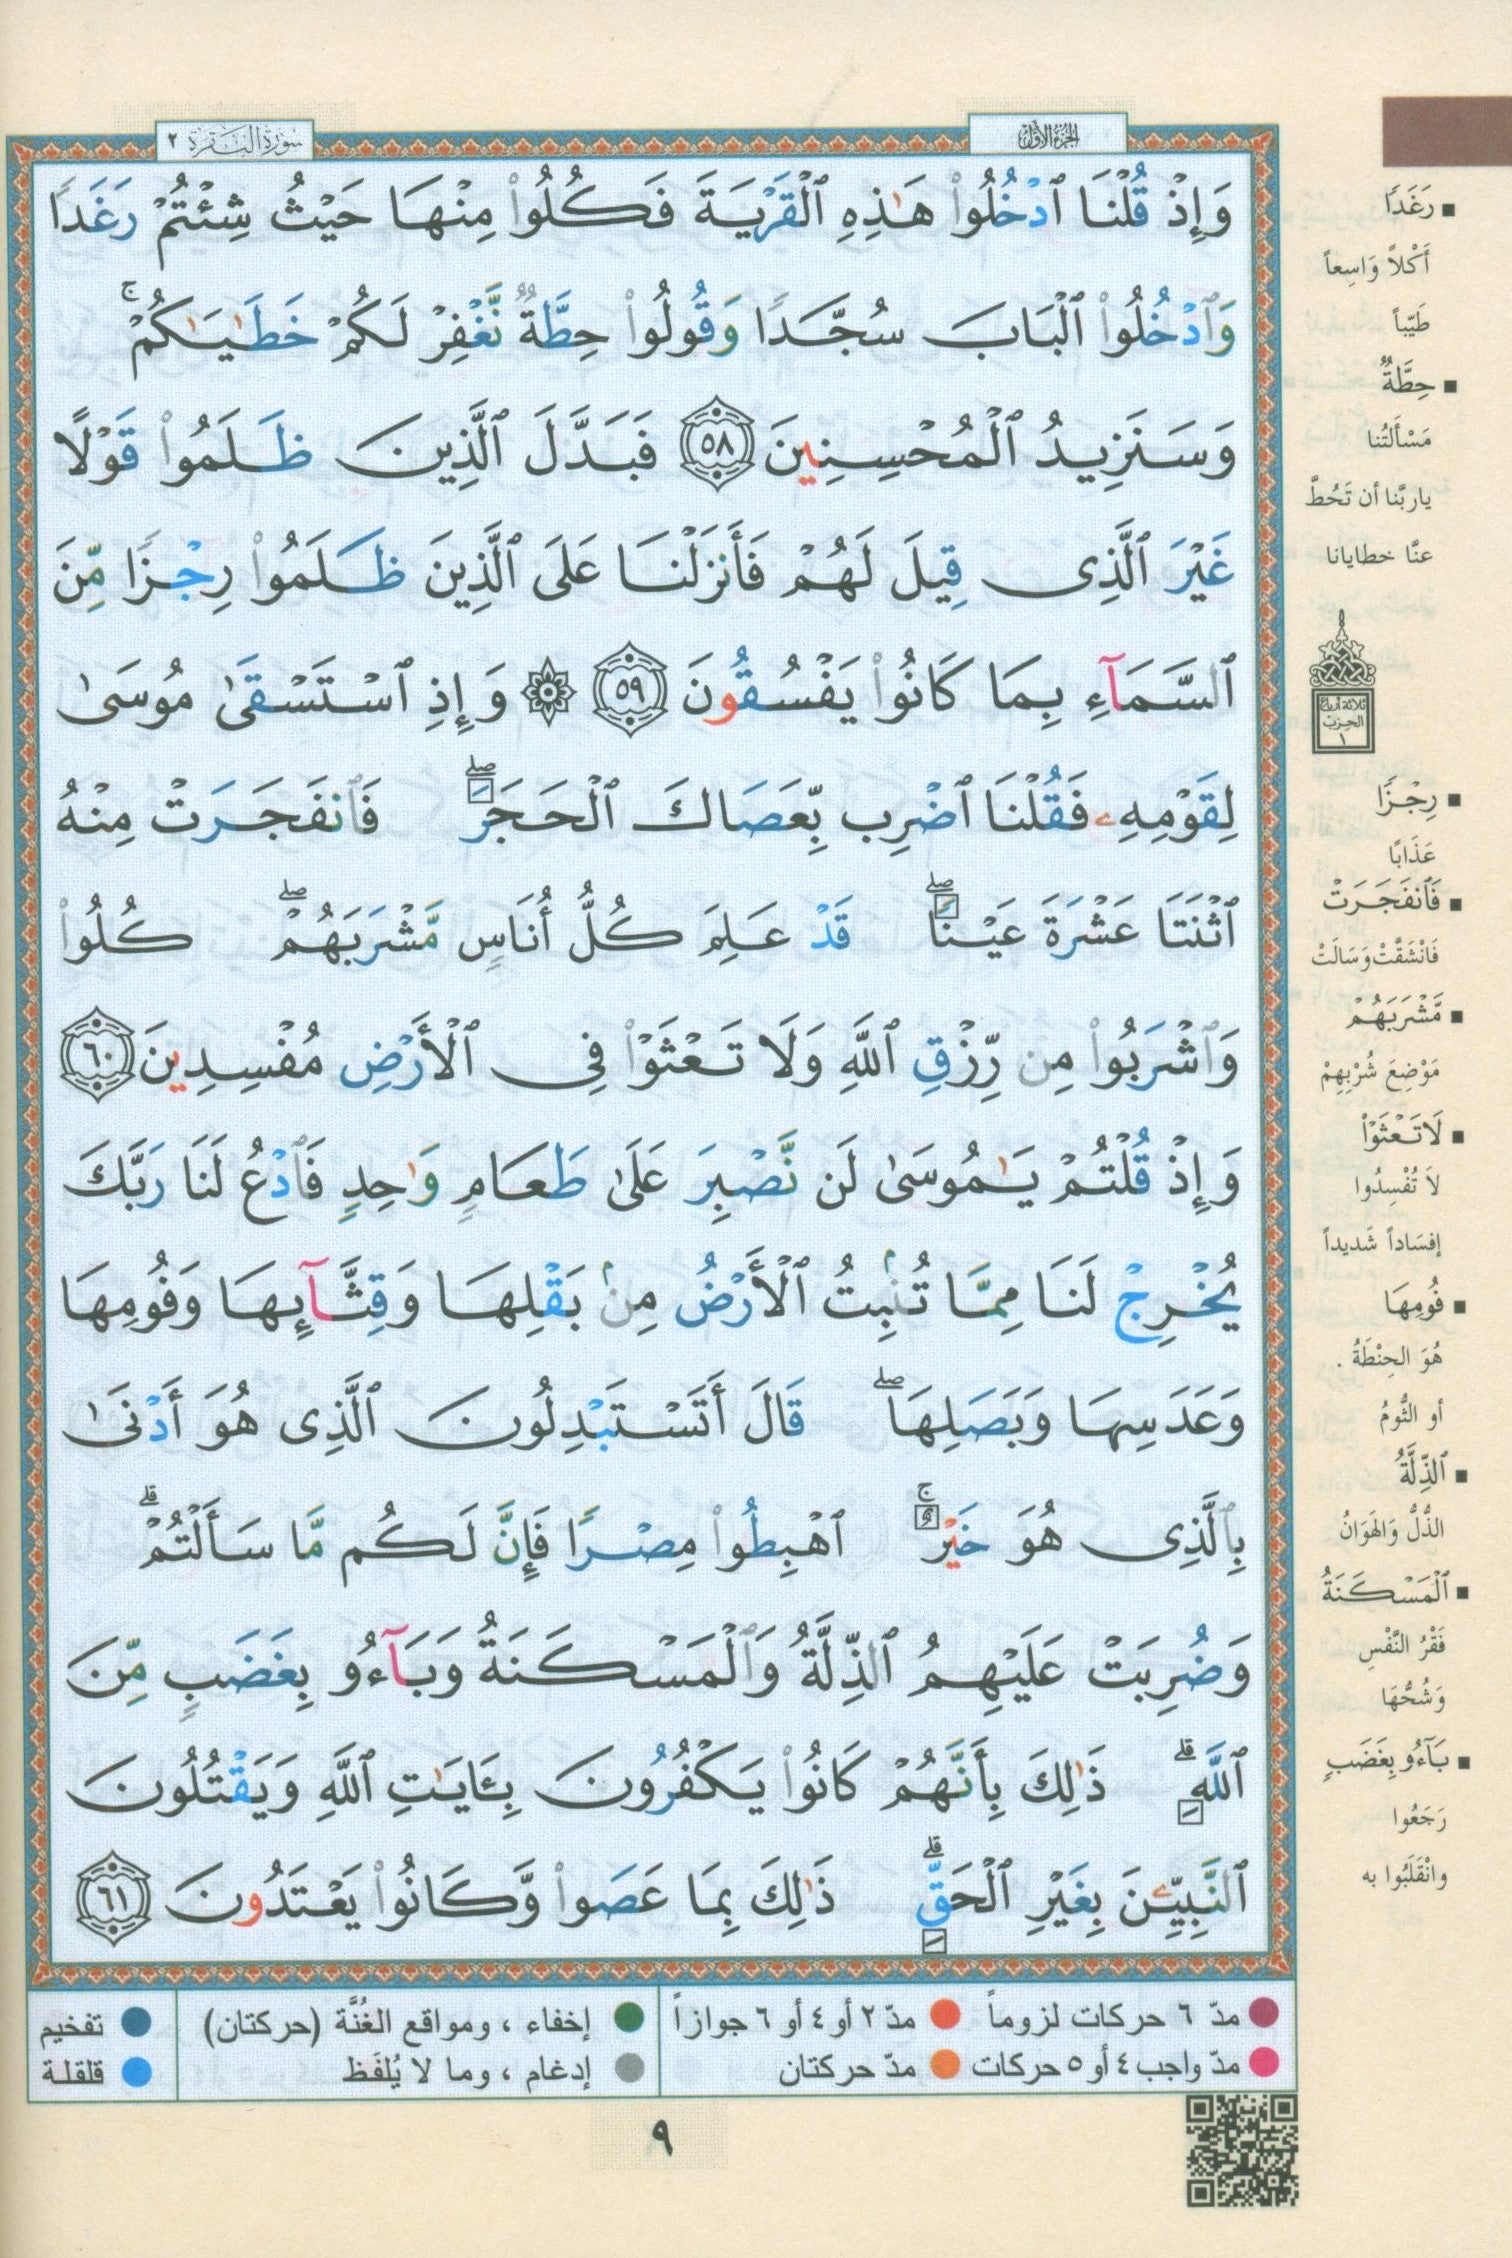 الجزء الأول
سورة البقرة ٢
وَإِذْ قُلْنَا ٱدْخُلُوا۟ هَـٰذِهِ ٱلْقَرْيَةَ فَكُلُوا۟ مِنْهَا حَيْثُ شِئْتُمْ رَغَدًا
وَٱدْخُلُوا۟ ٱلْبَابَ سُجَّدًا وَقُولُوا۟ حِطَّةٌ نَّغْفِرْ لَكُمْ خَطَـٰيَـٰكُمْ ۚ
وَسَنَزِيدُ ٱلْمُحْسِنِينَ ٥٨ فَبَدَّلَ ٱلَّذِينَ ظَلَمُوا۟ قَوْلًا
غَيْرَ ٱلَّذِى قِيلَ لَهُمْ فَأَنزَلْنَا عَلَى ٱلَّذِينَ ظَلَمُوا۟ رِجْزًا مِّنَ
ٱلسَّمَآءِ بِمَا كَانُوا۟ يَفْسُقُونَ ٥٩ ۞ وَإِذِ ٱسْتَسْقَىٰ مُوسَىٰ
لِقَوْمِهِۦ فَقُلْنَا ٱضْرِب بِّعَصَاكَ ٱلْحَجَرَ ۖ فَٱنفَجَرَتْ مِنْهُ
ٱثْنَتَا عَشْرَةَ عَيْنًا ۖ قَدْ عَلِمَ كُلُّ أُنَاسٍ مَّشْرَبَهُمْ ۖ كُلُوا۟
وَٱشْرَبُوا۟ مِن رِّزْقِ ٱللَّهِ وَلَا تَعْثَوْا۟ فِى ٱلْأَرْضِ مُفْسِدِينَ ٦٠
وَإِذْ قُلْتُمْ يَـٰمُوسَىٰ لَن نَّصْبِرَ عَلَىٰ طَعَامٍ وَٰحِدٍ فَٱدْعُ لَنَا رَبَّكَ
يُخْرِجْ لَنَا مِمَّا تُنۢبِتُ ٱلْأَرْضُ مِنۢ بَقْلِهَا وَقِثَّآئِهَا وَفُومِهَا
وَعَدَسِهَا وَبَصَلِهَا ۖ قَالَ أَتَسْتَبْدِلُونَ ٱلَّذِى هُوَ أَدْنَىٰ
بِٱلَّذِى هُوَ خَيْرٌ ۚ ٱهْبِطُوا۟ مِصْرًا فَإِنَّ لَكُم مَّا سَأَلْتُمْ ۗ
وَضُرِبَتْ عَلَيْهِمُ ٱلذِّلَّةُ وَٱلْمَسْكَنَةُ وَبَآءُو بِغَضَبٍ مِّنَ
ٱللَّهِ ۗ ذَٰلِكَ بِأَنَّهُمْ كَانُوا۟ يَكْفُرُونَ بِـَٔايَـٰتِ ٱللَّهِ وَيَقْتُلُونَ
ٱلنَّبِيِّـۧنَ بِغَيْرِ ٱلْحَقِّ ۗ ذَٰلِكَ بِمَا عَصَوا۟ وَّكَانُوا۟ يَعْتَدُونَ ٦١
رَغَدًا
أَكْلاً وَاسِعاً
طَيِّباً
حِطَّةٌ
مَسْأَلَتُنا
ياربَّنا أن تَحُطَّ
عنَّا خطايانا
ثلاثة أرباع
الحزب
١
رِجْزًا
عَذَابًا
فَٱنفَجَرَتْ
فَانْشَقَّتْ وَسَالَتْ
مَّشْرَبَهُمْ
مَوْضِعَ شُرْبِهِمْ
لَا تَعْثَوْا۟
لاَ تُفْسِدُوا
إفسَاداً شَديداً
فُومِهَا
هُوَ الحِنْطَةُ .
أو الثُّومُ
ٱلذِّلَّةُ
الذُّلُّ وَالهَوَانُ
ٱلْمَسْكَنَةُ
فَقْرُ النَّفْسِ
وَشُحُّهَا
بَآءُو بِغَضَبٍ
رَجَعُوا
وانْقَلَبُوا به
مدّ ٦ حركات لزوماً
مدّ ٢ أو ٤ أو ٦ جوازاً
إخفاء ، ومواقع الغُنَّة (حركتان)
تفخيم
مدّ واجب ٤ أو ٥ حركات
مدّ حركتان
إدغام ، وما لا يُلفَظ
قلقلة
٩